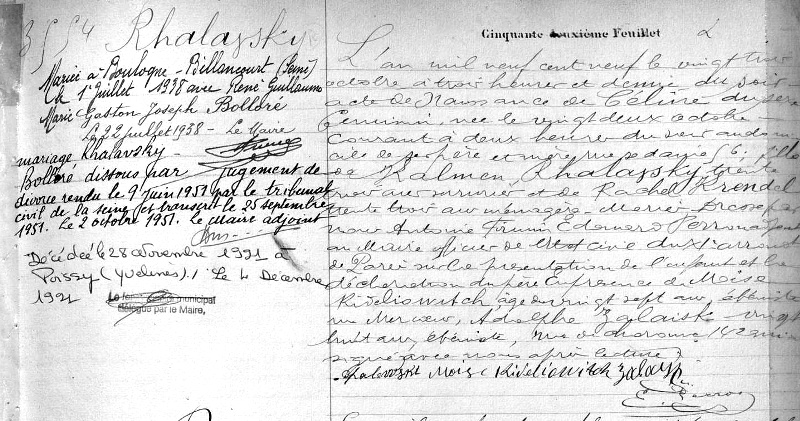 Cinquante deuxième Feuillet
3554 Khalavsky
Mariée à Boulogne-Billancourt (Seine)
le 1er juillet 1938 avec René Guillaume
Marie Gaston Joseph Bolloré
Le 22 juillet 1938 - Le Maire
mariage Khalavsky
Bolloré dissous par jugement de
divorce rendu le 9 juin 1951 par le tribunal
civil de la seine et transcrit le 25 septembre
1951. Le 2 octobre 1951. le Maire adjoint
Décédée le 28 novembre 1991 à
Poissy (Yvelines). Le 4 Décembre
1991
municipal
délégué par le Maire,
L'an mil neuf cent neuf le vingt trois
octobre à trois heures et demie du soir
acte de Naissance de Céline du sexe
féminin, née le vingt deux octobre
courant à deux heures du soir au domi
cile de ses père et mère, rue 56, fille
de Kalmen Khalavsky, trente
neuf ans et de Rachel Krendel
trente trois ans ménagère, mariés. Dressé par
nous Antoine Firmin Edouard Perrin adjoint
au Maire officier de l'Etat civil du XIe arrond
de Paris sur la présentation de l'enfant et la
déclaration du père en présence de Moïse
Kivéliowitch âgé de vingt sept ans, ébéniste
rue Mercœur, Adolphe Zalaisk vingt
huit ans, ébéniste, rue de Charonne, 142 qui ont
signé avec nous après lecture.
Khalavski Mois Kivéliowitch